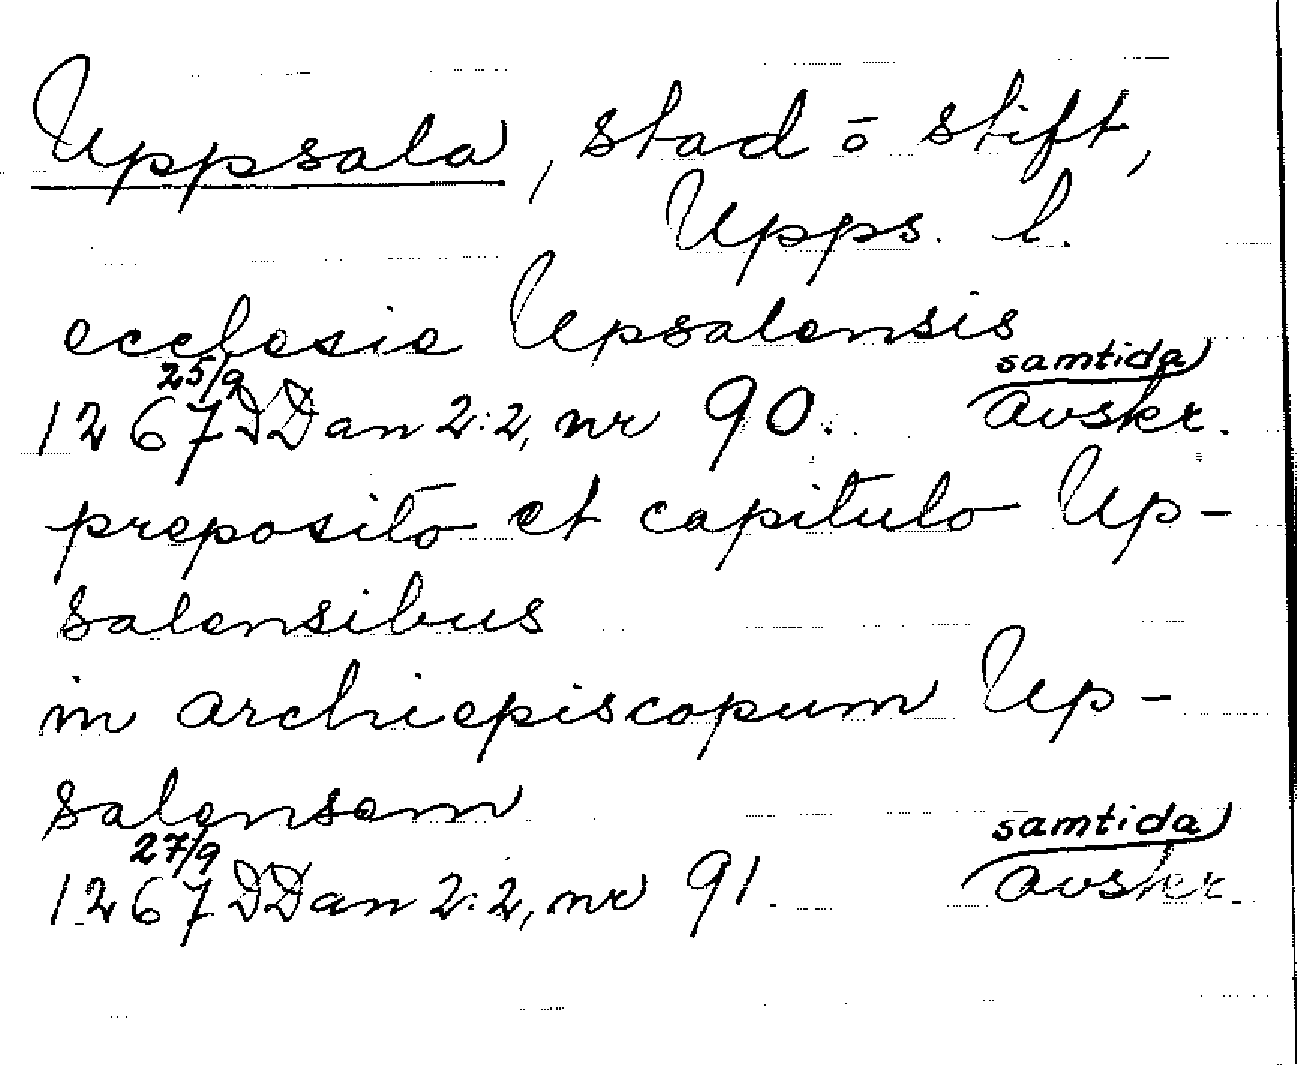 Uppsala, stad ō stift,
Upps. l.
ecclesie Upsalensis
1267 25/9 DDan 2:2, nr 90. samtida avskr.
preposito et capitulo Up-
salensibus
in archiepiscopum Up-
salensem
1267 27/9 DDan 2:2, nr 91. samtida avskr.